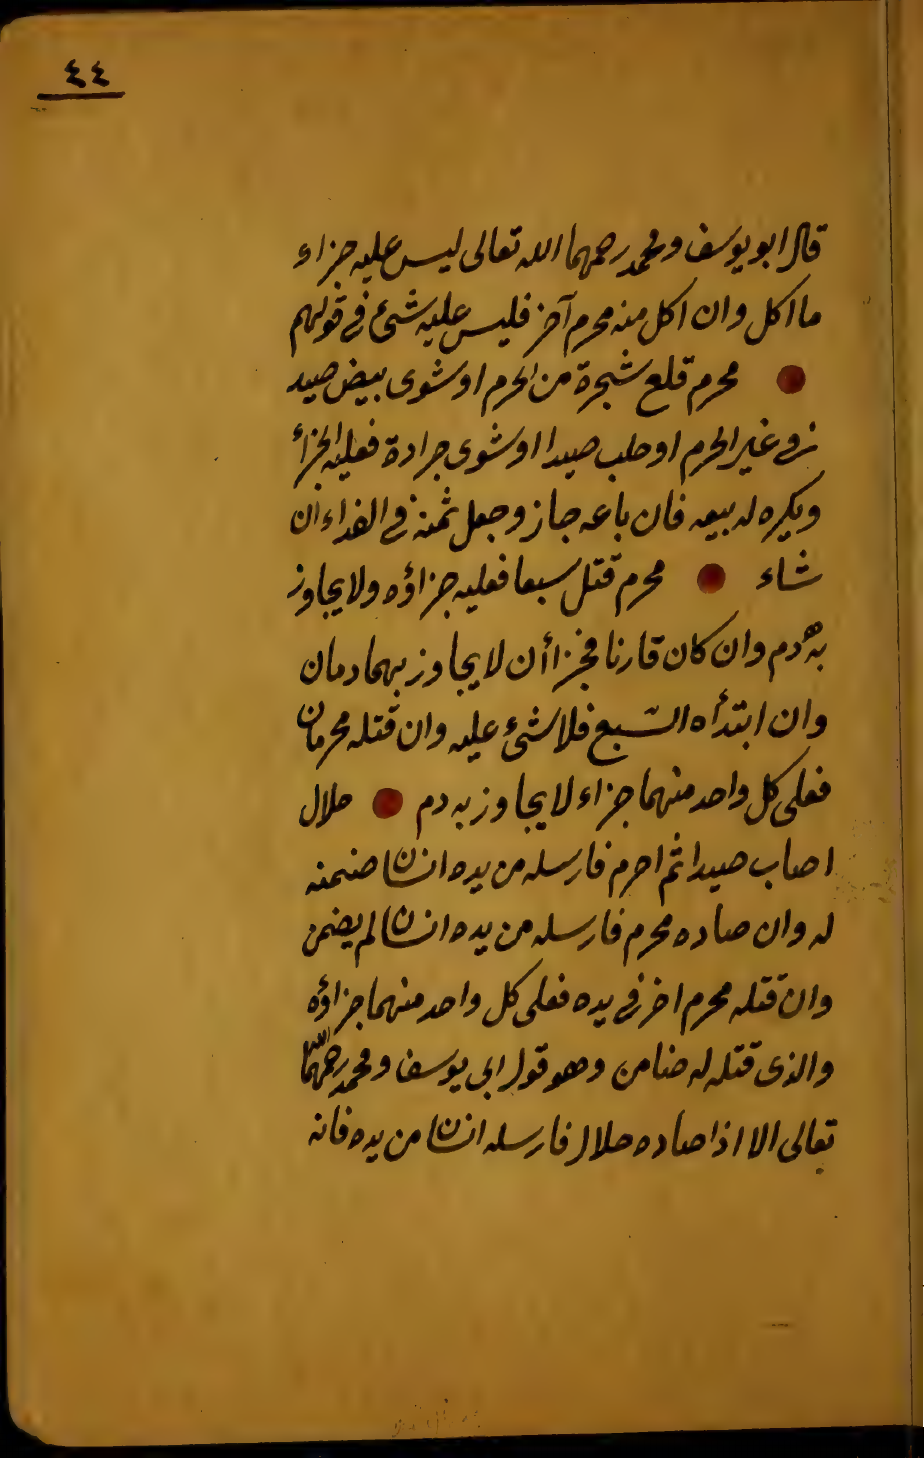 ٤٤
قال ابو يوسف ومحمد رحمهما الله تعالى ليس عليه جزاء
ما اكل وان اكل منه محرم آخر فليس عليه شئ فى قولهم
محرم قلع شجرة من الحرم او شوى بيض صيد
فى غير الحرم او حلب صيدا او شوى جرادة فعليه الجزأ
ويكره له بيعه فان باعه جاز وجعل ثمنه فى الفداء ان
شاء محرم قتل سبعا فعليه جزاؤه ولا يجاوز
به دم وان كان قارنا فجزاأن لا يجاوز بهما دمان
وان ابتدأه السبع فلا شئ عليه وان قتله محرمان
فعلى كل واحد منهما جزاء لا يجاوز به دم حلال
اصاب صيدا ثم احرم فارسله من يده انسان ضمنه
له وان صاده محرم فارسله من يده انسان لم يضمن
وان قتله محرم اخر فى يده فعلى كل واحد منهما جزاؤه
والذى قتله له ضامن وهو قول ابى يوسف ومحمد رحمهما الله
تعالى الا اذا صاده حلال فارسله انسان من يده فانه